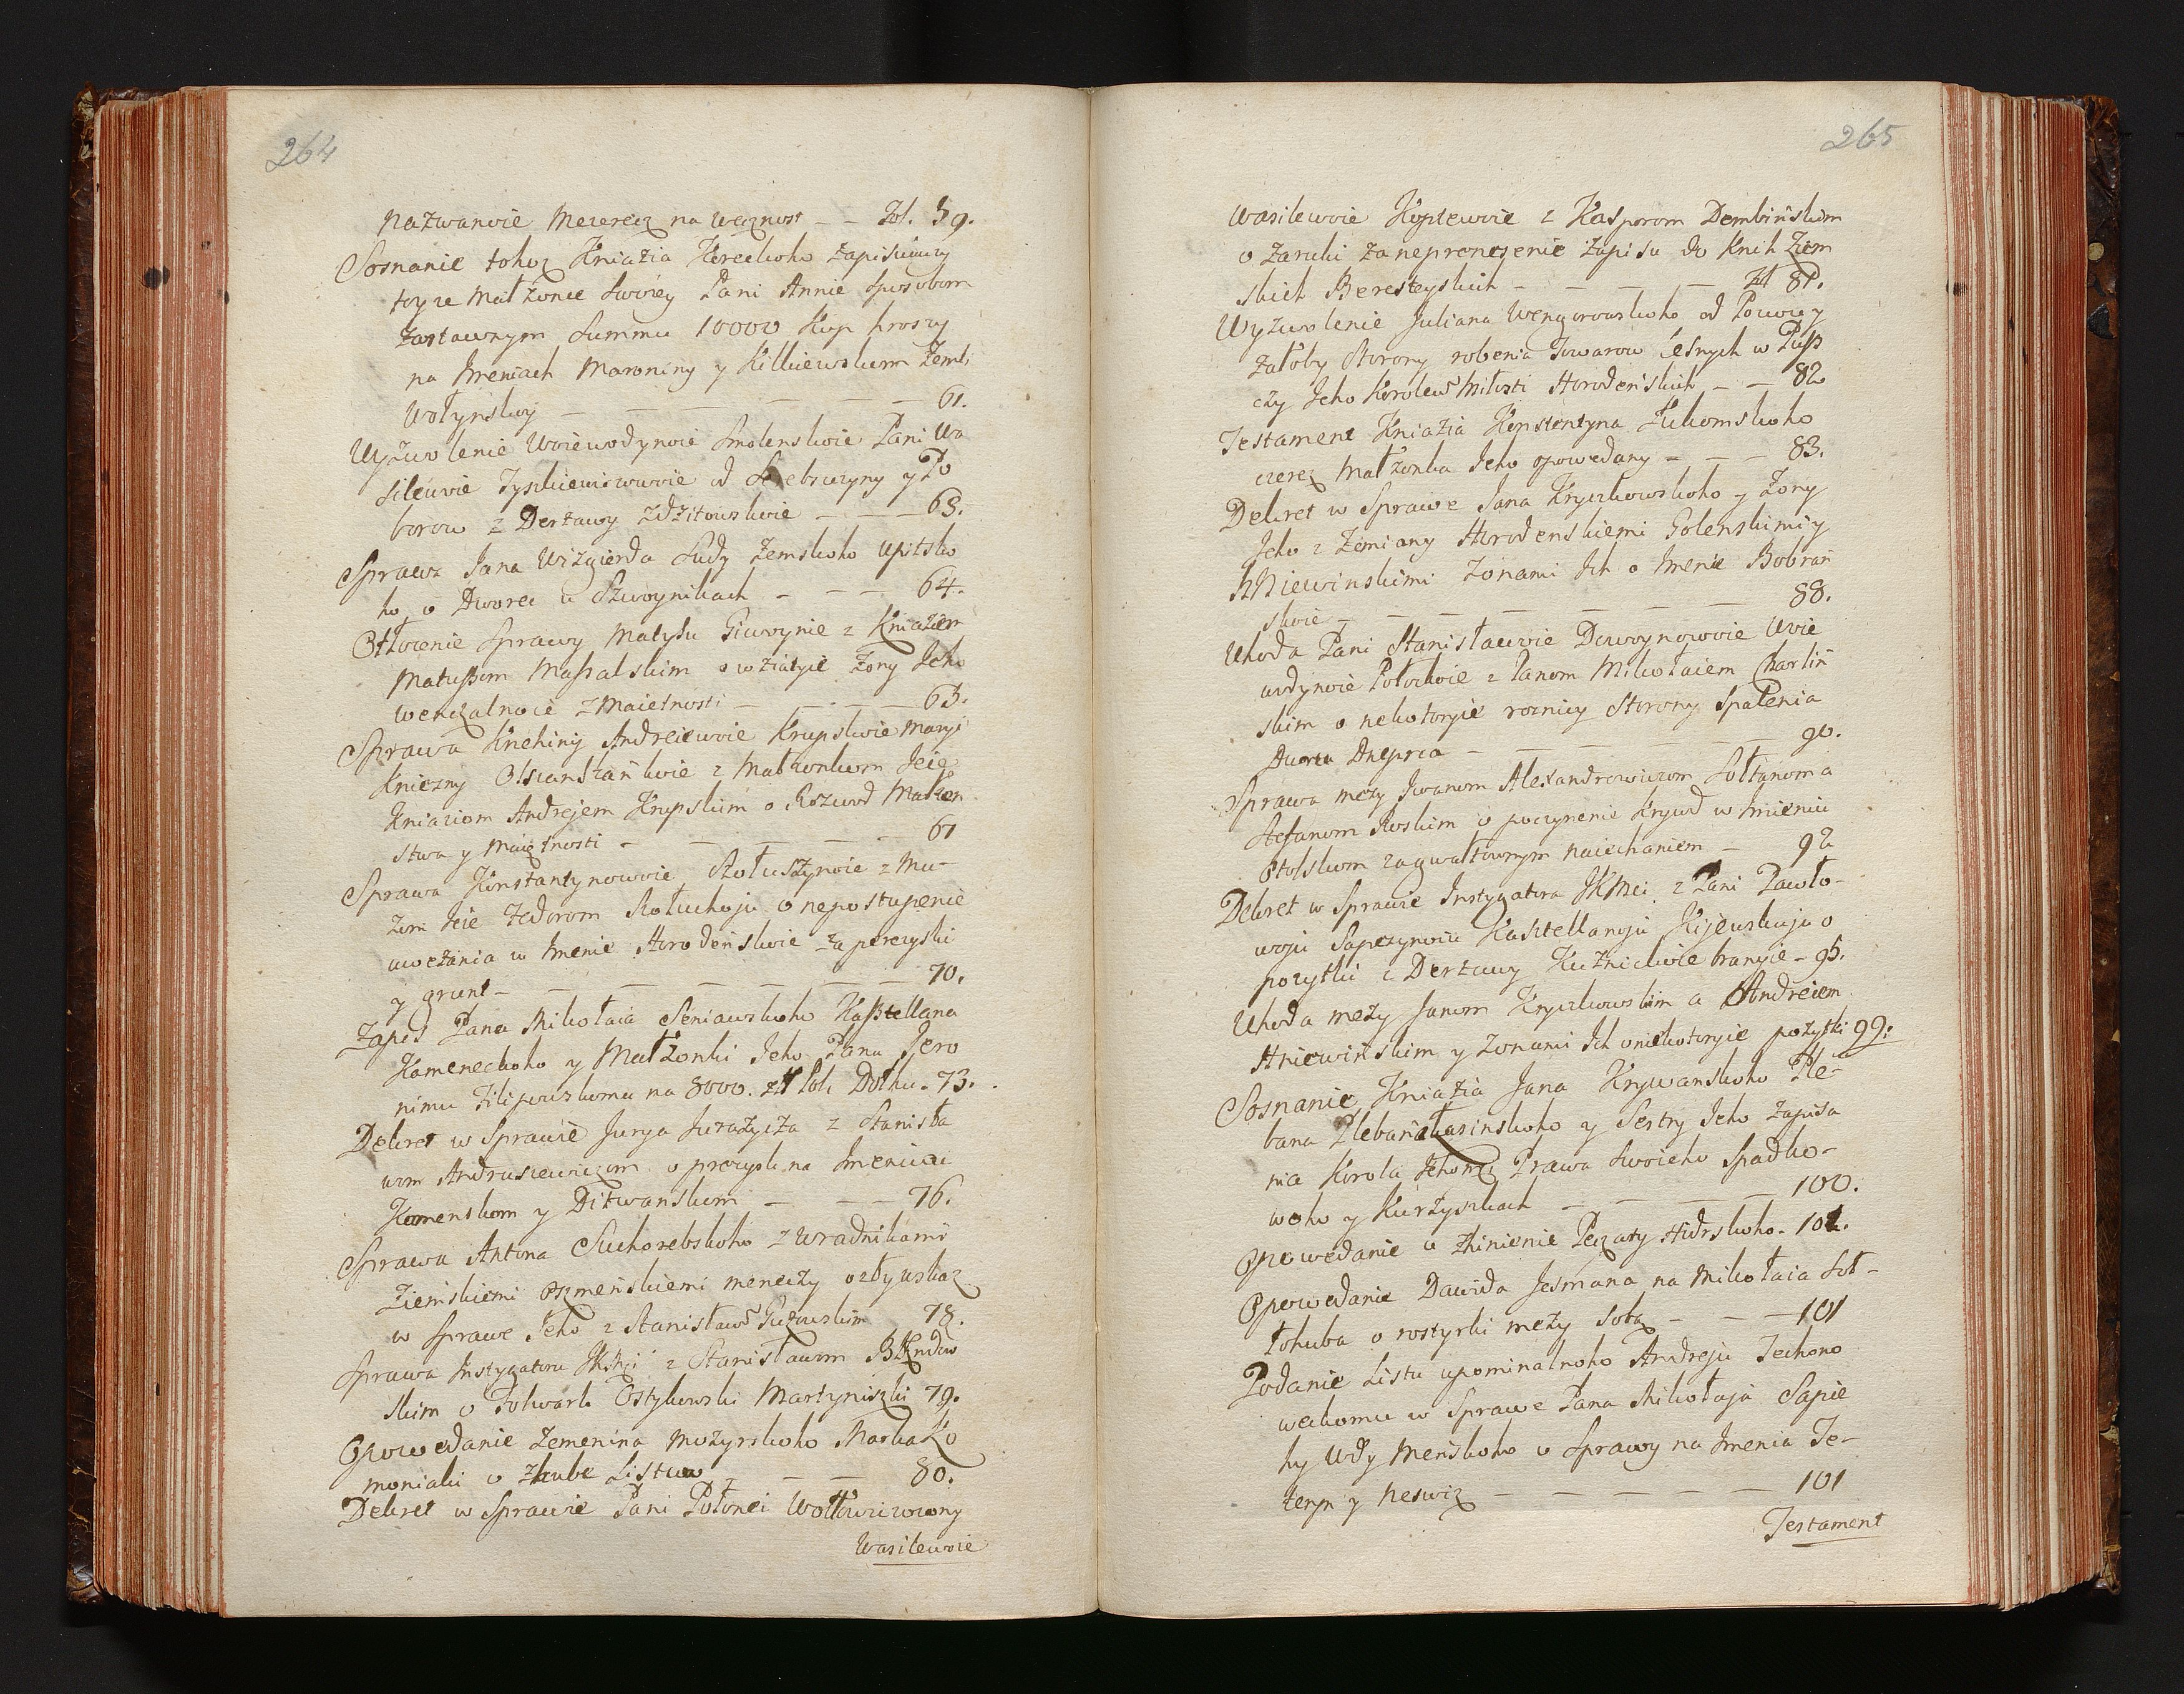 264
nazwanoie Mezerecz na weczност - - Fol. 59.
Sosnanie tohoz Kniazia Koreckoho zapisuiuczy
toyze Małżonce Swoiey Pani Annie sposobom
zastawnym Summu 10000 Kop hroszy
na Imeniach Maroniny y Kilkiewskom Zemli
Wołynskoy - - - - - 61.
Wyzwolenie Woiewodynoie Smolenskoie Pani Wa
sileuoie Tyszkiewiczowoie od Serebszczyny y Po
borow z Derżawy Zdzitowskoie - - - 63.
Sprawa Jana Wizgierda Sudy Zemskoho Upitsko
ho o Dworec u Szwoynikach - - - 64.
Otłożenie Sprawy Matysu Giwoynie z Kniaziem
Matuszom Massalskim o wziatyie Żony Jeho
wenczalnoie z Maietnosti - - - 65.
Sprawa Knehiny Andreiewoie Krupskoie Maryi
Kniezny Olszanskoie z Małżonkom Jeie
Kniaziom Andrejem Krupskim o Rozwod Małżen
stwa y Maiętnosti - - - - - 67
Sprawa Konstantynowoie Rołuszynoie z Mu-
żom Jeie Fedorom Rołuchoju o nepostupenie
uweżania w Imenie Horodeńskoie za perezyski
y grunt - - - - - - 70.
Zapis Pana Mikołaia Seniawskoho Kasztellana
Kameneckoho y Małżonki Jeho Panu Jero
nimu Filipouskomu na 8000. zł Pol: Dołhu. 73.
Dekret w Sprawie Jurya Jurażycza z Stanisła
wom Andrusiewiczom o prezysk na Imeniau
Komenskom y Ditwanskom - - - 76.
Sprawa Antona Suchorebskoho z Wradnikami
Ziemskiemi Oszmeńskiemi meneczy o zły wskaz
w Sprawe Jeho z Stanisławº Gużowskim 78.
Sprawa Instygatora JKMci z Stanisławom Blendow
skim o Folwark Ostykowski Martyniszki 79.
Opowedanie Zemenina Mozyrskoho Marka Ko
moniaki o Zhube Listow - - - 80.
Dekret w Sprawie Pani Połonei Wołłowiczowny
Wasilewoie
265
Wasilewoie Koptewoie z Kasporom Dembińskim
o zaruki za neprenesenie zapisu do Knih Ziem
skich Beresteyskich - - - - zł 81.
Wyzwolenie Juliana Wengorowskoho od Pozwu y
żałoby Storony robenia Towarow leśnych w Pusz
czy Jeho Korolewº Miłosti Horodeńskich - - 82
Testament Kniazia Konstentyna Łukomskoho
czerez Małżonka Jeho opowedany - - - 83.
Dekret w Sprawe Jana Kryczkowskoho y Żony
Jeho z Zemiany Horodenskiemi Golenskimi y
Hniewinskimi Żonami Ich o Imenie Bobrań
skoie - - - - - - 88.
Uhoda Pani Stanisławoie Dowoynowoie Woie
wodynoie Połockoie z Panom Mikołaiem Charliń
skim o nekotoryie roznicy Storony Spalenia
Dworca Dneprca - - - - - 90.
Sprawa mezy Iwanom Alexandrowiczom Sołtanom a
Stefanom Roskim o poczynenie Krywd w Imieniu
Otolskom zagwałtownym naiechaniem - 92
Dekret w Sprawie Instygatora JKMci z Pani Pawło-
woju Sapezynoiu Kasztellanoju Kijewskuju o
pożytki z Derżawy Kuznickoie branyie - 95.
Uhoda mezy Janom Kryczkowskim a Andreiem
Hniewińskim y Żonami Ich o niekotoryie pożytki 99.
Sosnanie Kniazia Jana Krywanskoho Ple-
bana Plebań y Sestry Jeho zapisa
nia Korolu Jehomci Prawa Swoieho Spadko-
woho y Kurżyszkach - - - - 100.
Opowedanie o Zhinienie Peczaty Hidrskoho. 101.
Opowedanie Dawida Jesmana na Mikołaia Soł-
łohuba o rostyrki mezy Sobą - - - 101
Podanie Listu upominalnoho Andreju Techono
weckomu w Sprawe Pana Mikołaja Sapie
hy Wdy Menskoho o Sprawy na Imenia Te-
teryn y Neswiz - - - - - 101
Testament